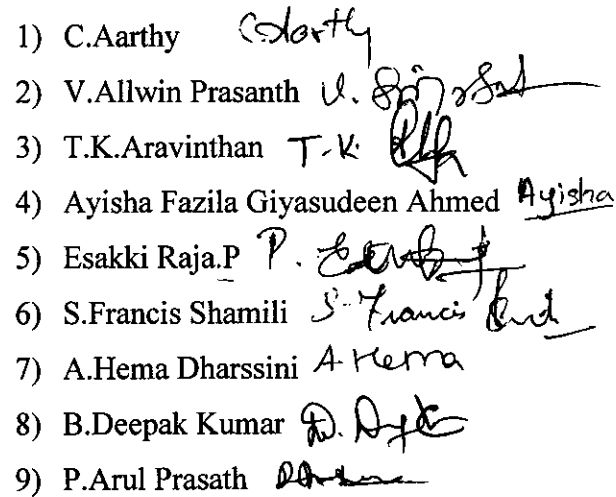 1) C.Aarthy C Aarthy
2) V.Allwin Prasanth V.
3) T.K.Aravinthan T.K.
4) Ayisha Fazila Giyasudeen Ahmed Ayisha
5) Esakki Raja.P P.
6) S.Francis Shamili S. Francis
7) A.Hema Dharssini A Hema
8) B.Deepak Kumar
9) P.Arul Prasath